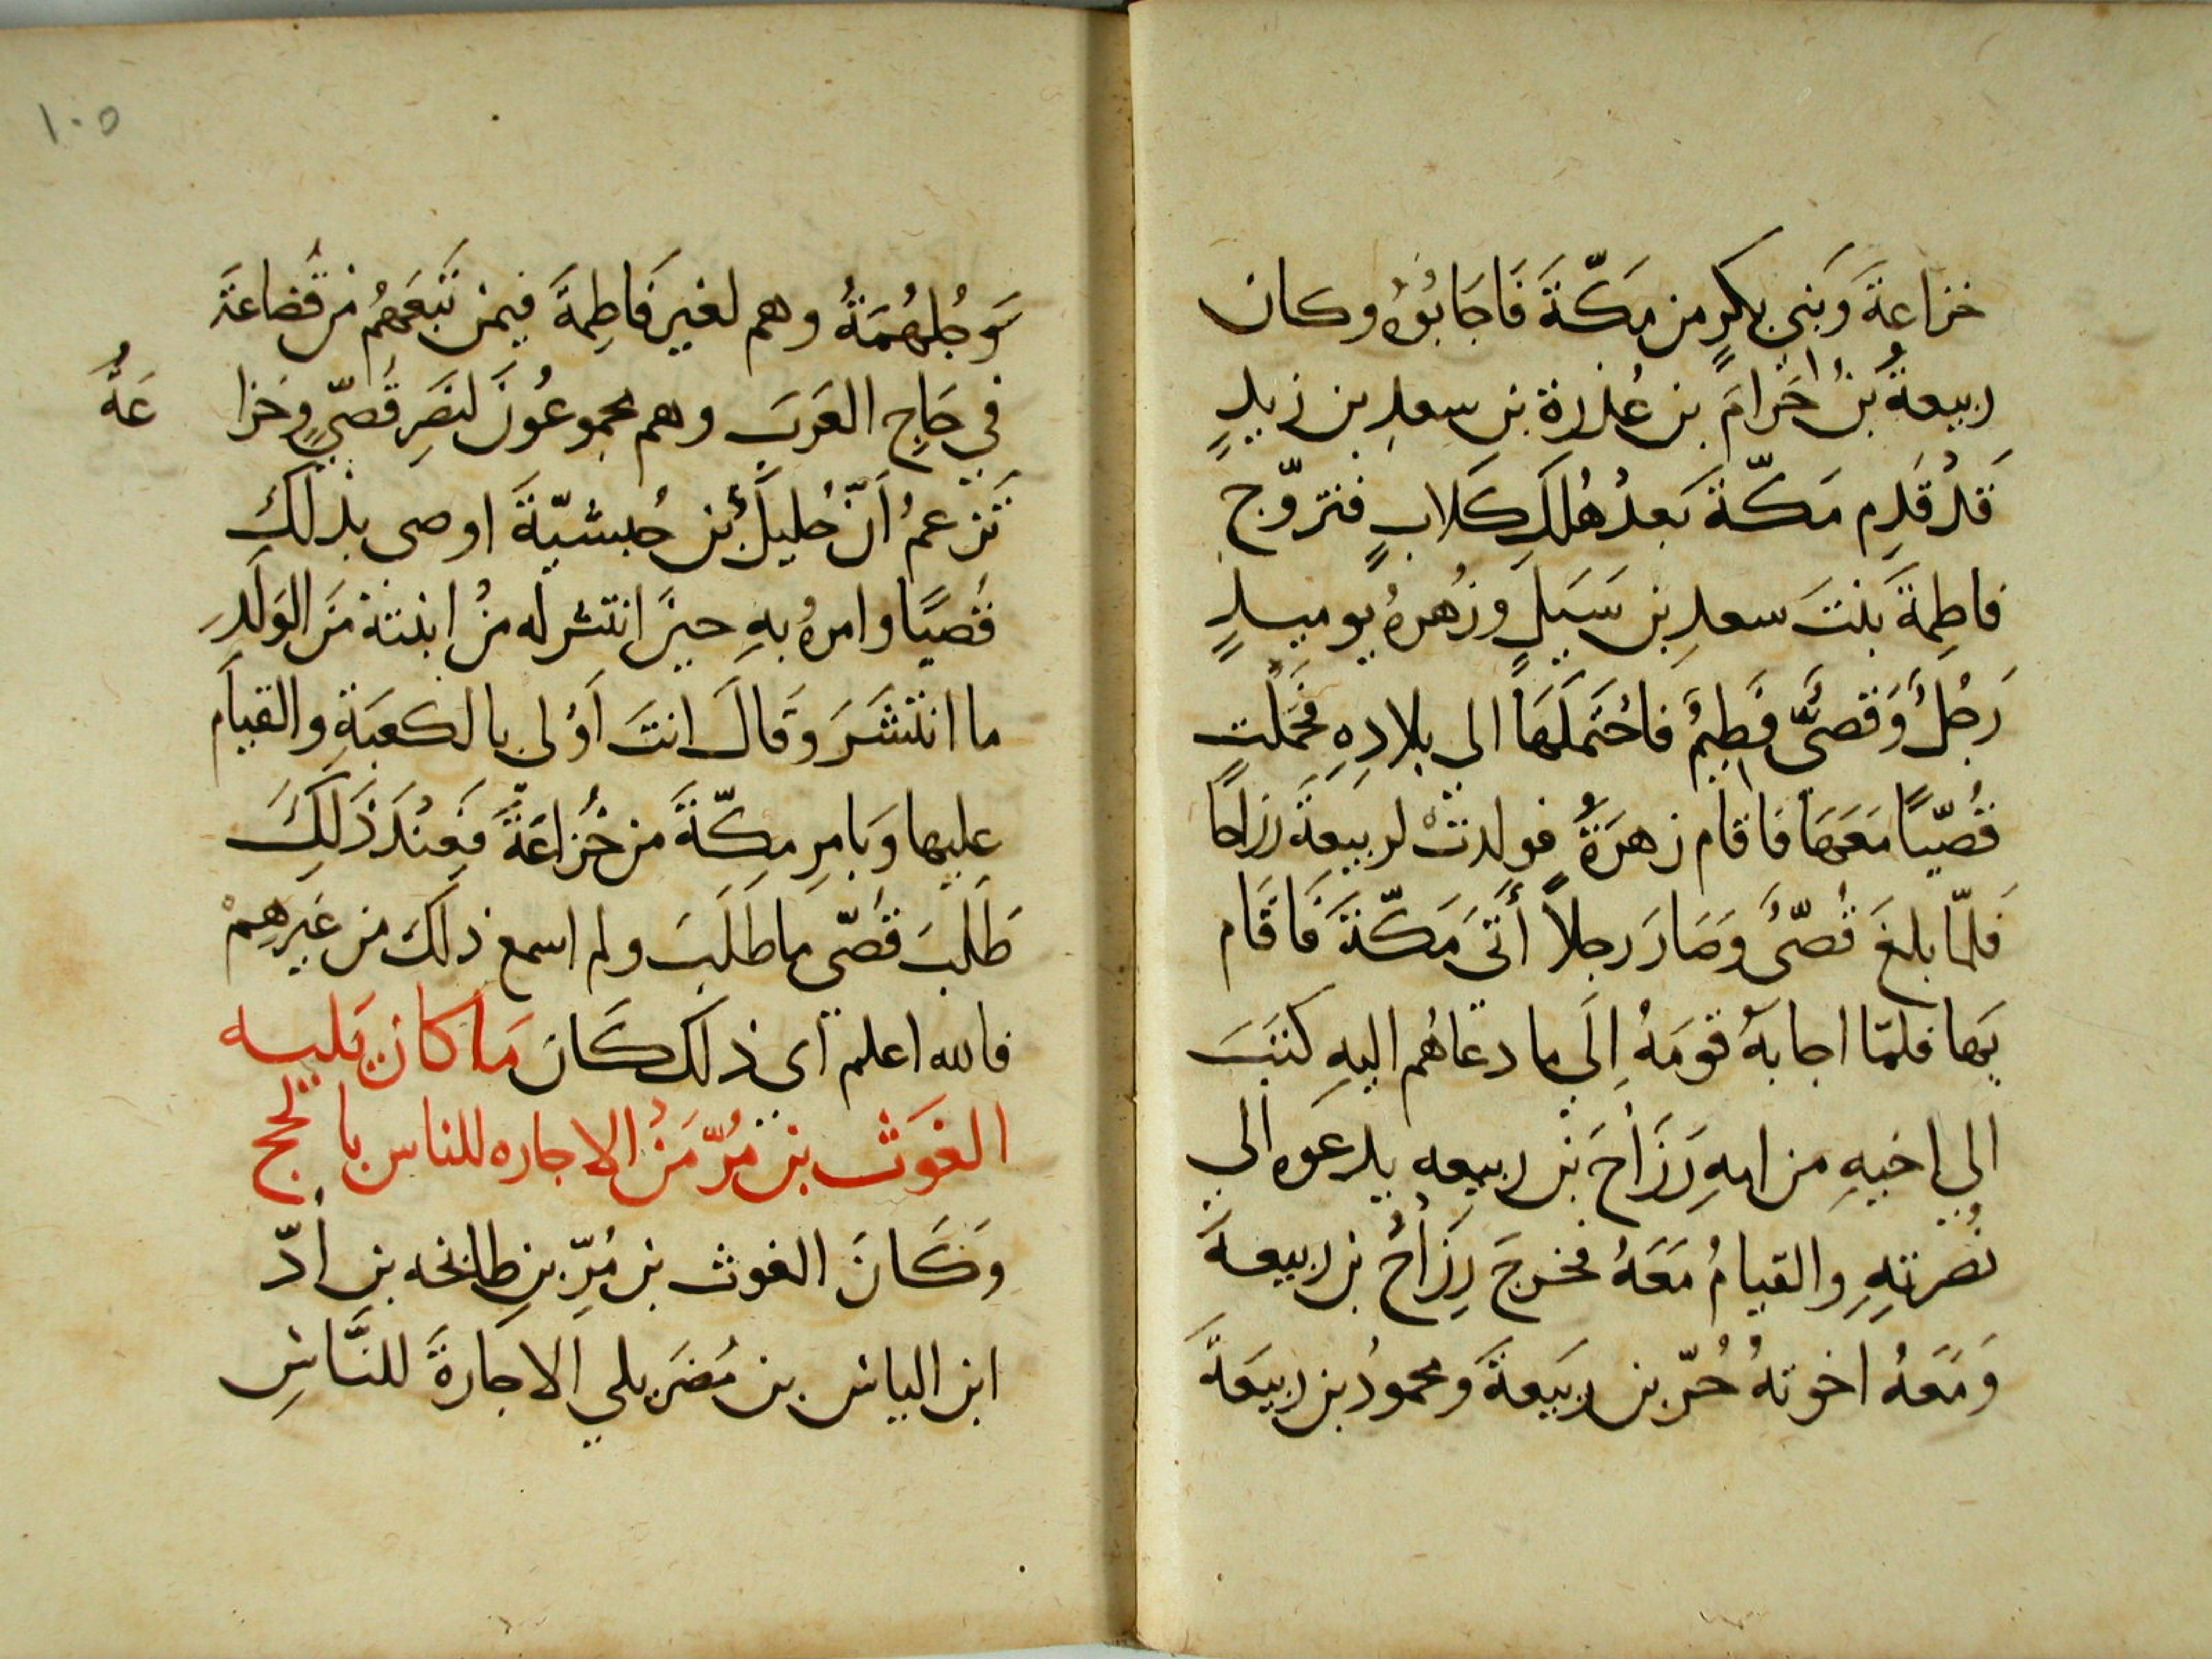 خزاعةَ وَبَني بكرٍ من مَكّةَ فَاجَابُوْهُ وكان
ربيعةُ بْنُ حَرامَ بن عُذرة بنِ سعدِ بن زيدٍ
قَدْ قَدِم مَكّةَ بَعدُ هُلكِ كَلابٍ فتزوّج
فاطِمةَ بنتَ سعدِ بن سَيَلٍ وزُهرهُ يوميذٍ
رَجُلٌ وَقصىٌّ فَطِيمٌ فاحْتَمَلَهَا الي بلادِهِ فحَمَلَت
قُصّيًا مَعَهَا فَاقام زهرَةُ فولدتْ لربيعةَ رزاحًا
فَلمّا بلغَ قُصّىٌ وَصَارَ رجلاً أَتَى مَكّةَ فَاقَام
بَها فلمّا اجابهُ قومَهُ اِلَي ما دعاهُم اليهِ كتبَ
الي اخيهِ من امهِ رَزَاحَ بن ربيعه يدعوه الي
نُصْرتهِ والقيامُ مَعَهُ فخرجَ رِزَاحُ بن ربيعةَ
وَمَعَهُ اخوتهُ حُرّ بن ربَيعةَ ومحمودُ بن ربيعَةَ
١٠٥
وَجُلهُمَةُ وهم لغيرِ فَاطِمةَ فيمن تَبَعَهُم من قُضاعَةَ
في حَاجِ العَربَ وهم مجموعُونَ لنَصرِ قَصّيٍ وخزا عَةُ
تَزعمُ اَنّ حُليلَ بن حُبشيّةَ اوصى بذلكِ
قُصَيًا وامرهُ بهِ حينَ انتشر له منُ ابنتهَ مَن الوَلَدِ
ما انتَشَرَ وَقالَ انتَ اَوْلى بالكعبَةِ والقيام
عليها وَبامرِ مكّةَ من خُزاعَةَ فَعِنْدَ ذَلِكَ
طَلَبَ قُصّى ما طَلَبَ ولم اسمع ذلكَ من غيرهِمْ
فالله اعلم اى ذلك كَانَ مَا كان يَليه
الغَوَث بن مُرّ مَنُ الاجاره للناس بالحج
وَكَانَ الغوث بن مُرّ بن طابخه بنِ أدّ
ابن الياس بن مُضَر يلي الاجَارةَ للنَّاسِ